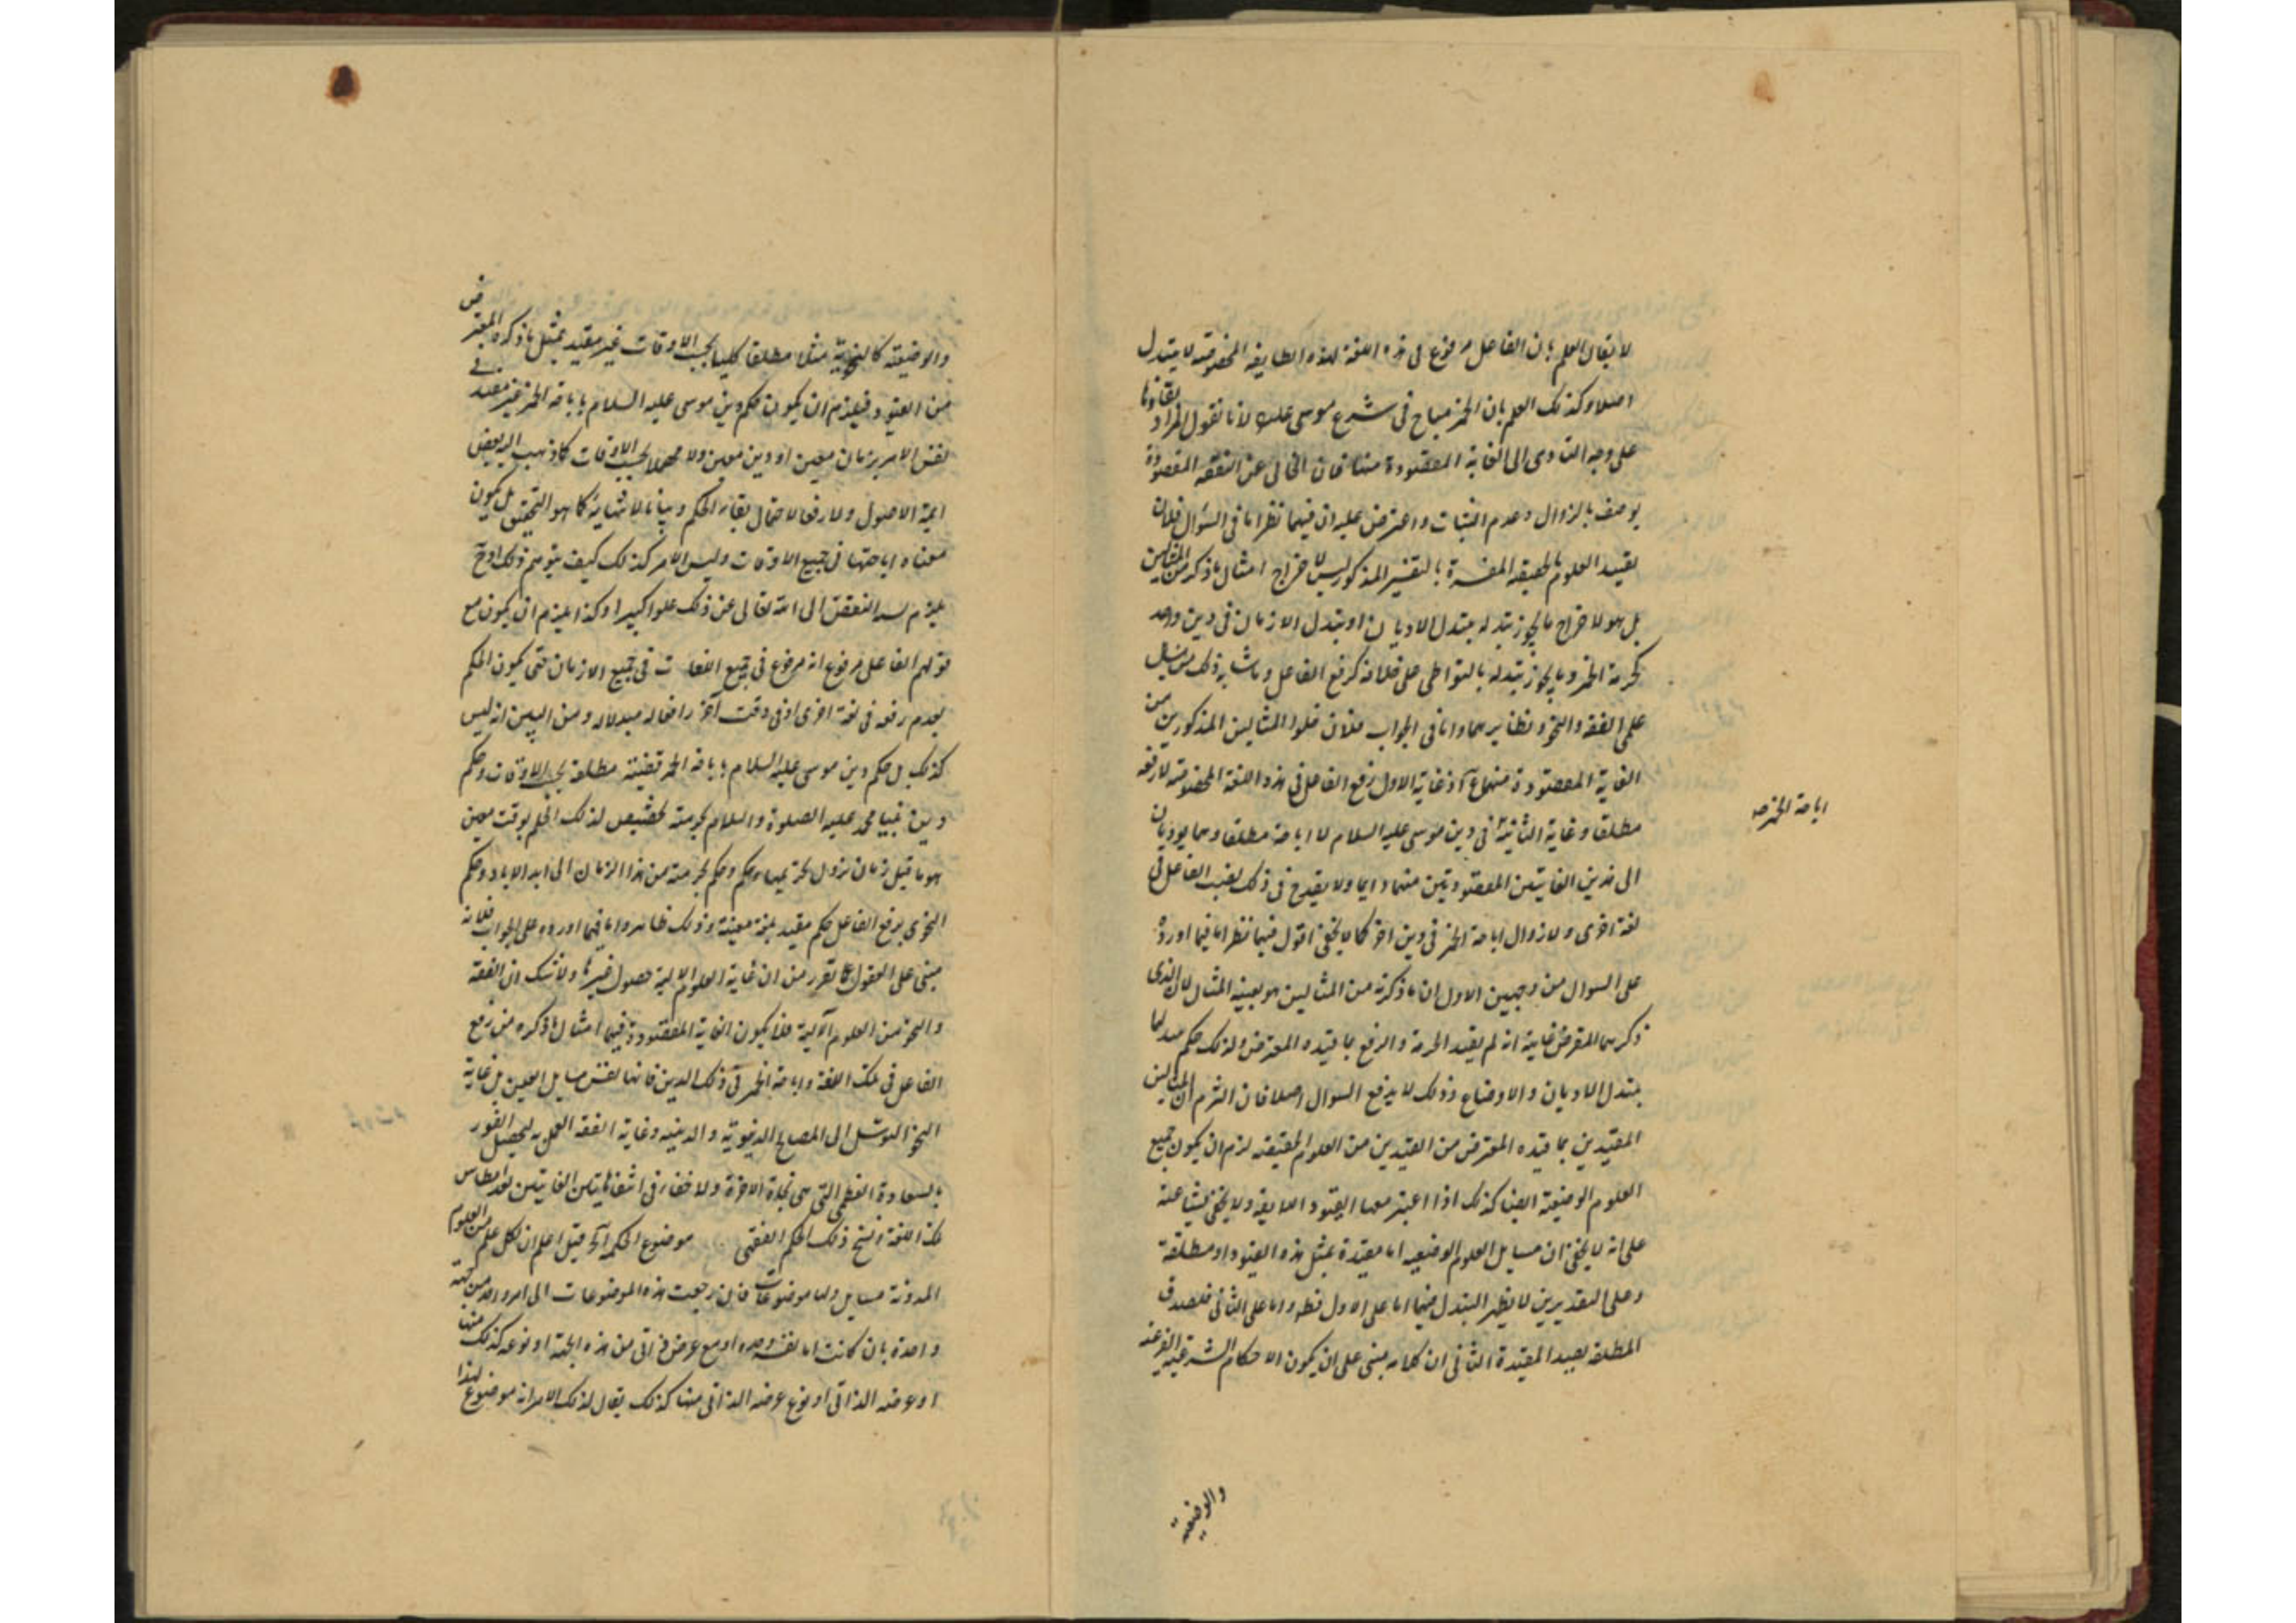 لا يقال العلم بان الفاعل مرفوع فى هذه اللغة لهذه الطايفة المخصوصة لا يتبدل
اصلا وكذلك العلم بان الخمر مباح فى شرع موسى علم لانا نقول المراد بقاؤها
على وجه التادى الى الغاية المقصودة منها فان الخالى عن النفقه المقصودة
يوصف بالزوال وعدم الثبات واعترض عليه ان فيهما نظرا اما فى السؤال فلان
تقييد العلوم بالحقيقه المفسرة بالتفسير المذكور ليس لاخراج امثال ما ذكر من المثالين
بل هو لاخراج ما يجوز تبدله بتبدل الاديان او بتبدل الازمان فى دين واحد
كحرمة الخمر وما يجوز تبدله بالتواطى على خلافه كرفع الفاعل وما شابه ذلك من مسايل
علمى الفقه والنحو ونظايرهما واما فى الجواب فلان خلوا المثالين المذكورين من
الغاية المقصودة منهما مح اذ غاية الاول رفع الفاعل فى هذه اللغة المخصوصة لا رفعه
مطلقا وغاية الثانية فى دين موسى عليه السلام لا اباحة مطلقا وهما يوديان
اباحة الخمر صح
الى هذين الغايتين المقصودتين منهما دايما ولا يقدح فى ذلك نصب الفاعل فى
لغة اخرى ولا زوال اباحة الخمر فى دين اخر كما لا يخفى اقول فيهما نظر اما فيما اورده
على السوال من وجهين الاول ان ما ذكرته من المثالين هو بعينه المثال لان الذى
ذكرهما المعترض غايته انه لم يقيد الحرمة والرفع بما قيده المعترض ولذلك حكم بتبدلهما
بتبدل الاديان والاوضاع وذلك لا يدفع السوال اصلا فان التزم ان المثالين
المقيدين بما قيده المعترض من القيدين من العلوم الحقيقه لزم ان يكون جميع
العلوم الوضيعة ايضا كذلك اذا اعتبر معها القيود اللايقة ولا يخفى بشاعته
على انه لا يخفى ان مسايل العلوم الوضعيه اما مقيدة بمثل هذه القيود او مطلقة
وعلى التقديرين لا يظهر التبدل فيها اما على الاول فظ واما على الثانى فلصدق
المطلقه بصدا المقيدة الثانى ان كلامه مبنى على ان يكون الاحكام الشرعية الفرعية
والوضعية
والوضيعة كالنحوية مثلا مطلقا كليا بحسب الاوقات غير مقيد بمثل ما ذكره المعترض
من القيود فيلزم ان يكون حكم دين موسى عليه السلام باباحة الخمر غير مقيد فى
نفس الامر بزمان معين او دين معين ولا مهملا بحسب الاوقات كما ذهب اليه بعض
ايمة الاصول ولا رفعا لاحتمال بقاء الحكم وبيانا لانتهائه كما هو التحقيق بل يكون
معناه اباحتها فى جميع الاوقات وليس الامر كذلك كيف يتوهم ذلك اوح
يلزم نسبة النقص الى الله تعالى عن ذلك علوا كبيرا وكذا يلزم ان يكون مع
قولهم الفاعل مرفوع انه مرفوع فى جميع اللغات فى جميع الازمان حتى يكون الحكم
بعدم رفعه فى لغة اخرى او فى وقت آخر رافعا له مبدلا له ومن البين انه ليس
كذلك بل حكم دين موسى عليه السلام باباحة الخمر قضيته مطلقة بحسب الاوقات وحكم
دين نبينا محمد عليه الصلوة والسلام بحرمته تخصيص لذلك الحكم بوقت معين
هو ما قبل زمان نزول تحريمها وحكم وحكم بحرمته من هذا الزمان الى ابد الاباد وحكم
النحوى برفع الفاعل حكم مقيد بلغة معينة وذلك ظاهر واما فيما اورده على الجواب فلانه
مبنى على الغفول عما تقرر من ان غاية العلوم الالية حصول غيرها ولا شك ان الفقه
والنحو من العلوم الآلية فلا يكون الغاية المقصودة فيهما امثال ما ذكره من رفع
الفاعل فى تلك اللغة واباحة الخمر فى ذلك الدين فانها نفس مسايل العلمين بل غاية
النحو التوسل الى المصالح الدنيوية والدينيه وغاية الفقه العمل به ليحصل الفوز
بالسعادة العظمى التى هى نجاة الاخرة ولا خفاء فى انتفا هاتين الغايتين بعد انطماس
تلك اللغة وانسخ ذلك الحكم الفقهى موضوع الحكمه آلخ قيل اعلم ان لكل علم من العلوم
المدونة مسايل ولها موضوعات فان رجعت هذه الموضوعات الى امر واحد من جهة
واحدة بان كانت اما نفسه وحده او مع عرض ذاتى من هذه الجهة او نوعه كذلك منها
او عرضه الذاتى او نوع عرضه الذاتى منها كذلك يقال لذلك الامر انه موضوع لهذا